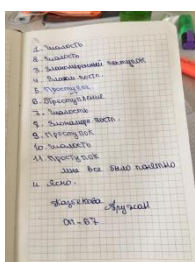 1. Шалость
2. Шалость
3. Злонамеренный поступок
4. Злонам поступ.
5. Проступок.
6. Преступление
7. Шалость
8. Злонамер. поступ.
9. Проступок
10. Шалость
11. Проступок
мне все было понятно
и ясно.
Аружан
ОП-67